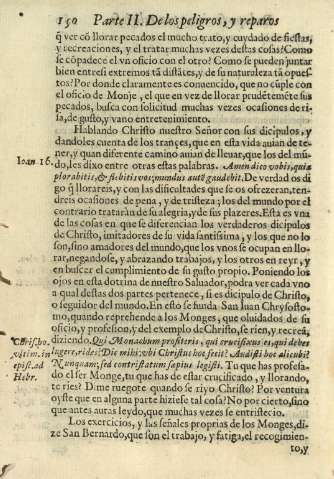 150 Parte II. De los peligros, y reparos
q̃ ver cõ llorar pecados el mucho trato, y cuydado de fiestas,
y recreaciones, y el tratar muchas vezes destas cosas? Como
se cõpadece el vn oficio con el otro? Como se pueden juntar
bien entre si extremos tã distãtes, y de su naturaleza tã opues
tos? Por donde claramente es conuencido, que no cũple con
el oficio de Monje, el que en vez de llorar prudẽtemẽte sus
pecados, busca con solicitud muchas vezes ocasiones de ri-
sa, de gusto, y vano entretenimiento.
Hablando Christo nuestro Señor con sus dicipulos, y
dandoles cuenta de los trançes, que en esta vida auian de te-
ner, y quan diferente camino auian de lleuar, que los del mũ-
Ioan. 16. do, les dixo entre otras estas palabras. Amen dico vobis, quia
plorabitis, & flebitis vos; mundus autẽ gaudebit. De verdad os di
go q̃ llorareis, y con las dificultades que se os ofrezeran, ten-
dreis ocasiones de pena, y de tristeza; los del mundo por el
contrario trataràn de su alegria, y de sus plazeres. Esta es vna
de las cosas en que se diferencian los verdaderos dicipulos
de Christo, imitadores de su vida santissima, y los que no lo
son, sino amadores del mundo, que los vnos se ocupan en llo-
rar, negandose, y abrazando trabajos, y los otros en reyr, y
en buscar el cumplimiento de su gusto propio. Poniendo los
ojos en esta dotrina de nuestro Saluador, podra ver cada vno
a qual destas dos partes pertenece, si es dicipulo de Christo,
o seguidor del mundo. En esto se funda San Iuan Chrysosto-
mo, quando reprehende a los Monges, que oluidados de su
oficio, y profesion, y del exemplo de Christo, se rien, y recreã,
Chrisho. diziendo. Qui Monachum profiteris, qui crucifixus es, qui debes
lugere, rides? Dic mihi: vbi Christus hoc fecit? Audisti hoc alicubi?
epist. ad Nunquam; sed contristatum sæpius legisti. Tu que has profesa-
Hebr. do el ser Monge, tu que has de estar crucificado, y llorando,
te ries? Dime ruegote quando se riyo Christo? Por ventura
oyste que en alguna parte hiziese tal cosa? No por cierto, sino
que antes auras leydo, que muchas vezes se entristecio.
Los exercicios, y las señales proprias de los Monges, di-
ze San Bernardo, que son el trabajo, y fatiga, el recogimien-
to, y